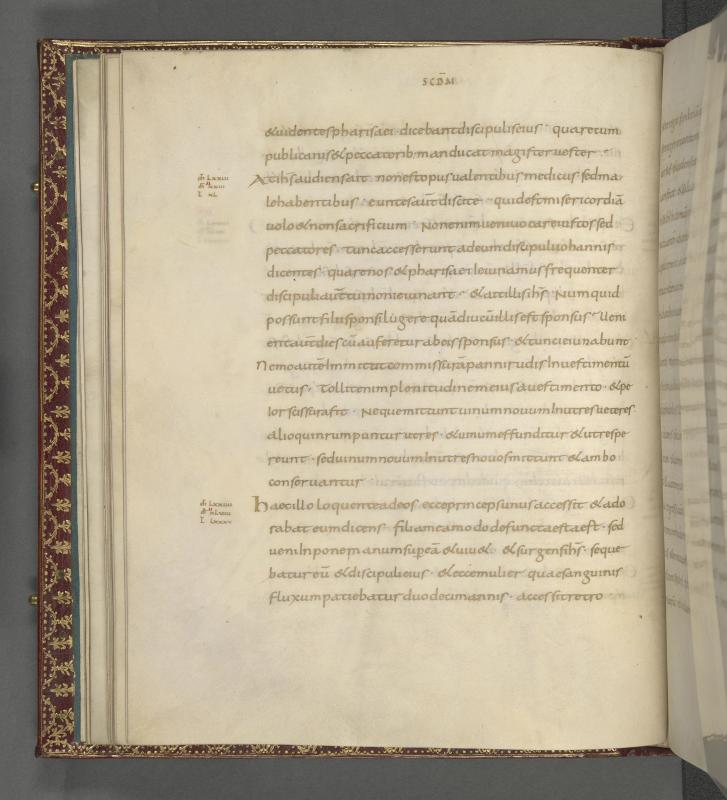 SCDM
&uidentes pharisaei dicebant discipulis eius · quare cum
publicanis & peccatorib; manducat magister uester ·
At ihs audiens ait · non est opus ualentibus medicus sed ma
le habentibus · euntes aut discite · quid est misericordiā
uolo & non sacrificium · Non enim ueni uocare iustos sed
peccatores · tunc accesserunt ad eum discipuli iohannis
dicentes · quare nos & pharisaei ieiunamus frequenter
discipuli aut tui non ieiunant · & ait illis ihs · Numquid
possunt filii sponsi lugere quādiu cū illis est sponsus · Ueni
ent aut dies cū auferetur ab eis sponsus · & tunc ieiunabunt
Nemo autē Inmittit commissurā panni rudis In uestimentū
uetus · tollit enim plenitudinem eius a uestimento · & pe
ior scissura fit · Neque mittunt uinum nouum In utres ueteres
alioquin rumpuntur utres · & uinum effunditur & utres pe
reunt · sed uinum nouum In utres nouos mittunt & ambo
conseruantur
haec illo loquente ad eos · ecce princeps unus accessit & ado
rabat eum dicens · filia mea modo defuncta est · sed
ueni Inpone manum super eā & uiu& · & surgens ihs · seque
batur eū & discipuli eius · & ecce mulier quae sanguinis
fluxum patiebatur duodecim annis · accessit retro